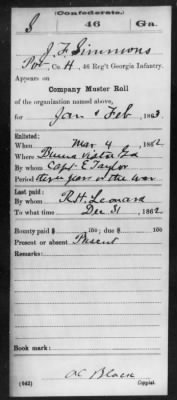 (Confederate.)
S 46 Ga.
J. F. Simmons
Pvt, Co. H, 46 Reg't Georgia Infantry.
Appears on
Company Muster Roll
of the organization named above,
for Jan & Feb, 1863.
Enlisted:
When Mar 4, 1862
Where Buena Vista Ga
By whom Capt. E Taylor
Period three years or the war
Last paid:
By whom R. H. Leonard
To what time Dec 31, 1862
Bounty paid $ 100; due $ 100
Present or absent Present
Remarks:
Book mark:
(642) Copyist.